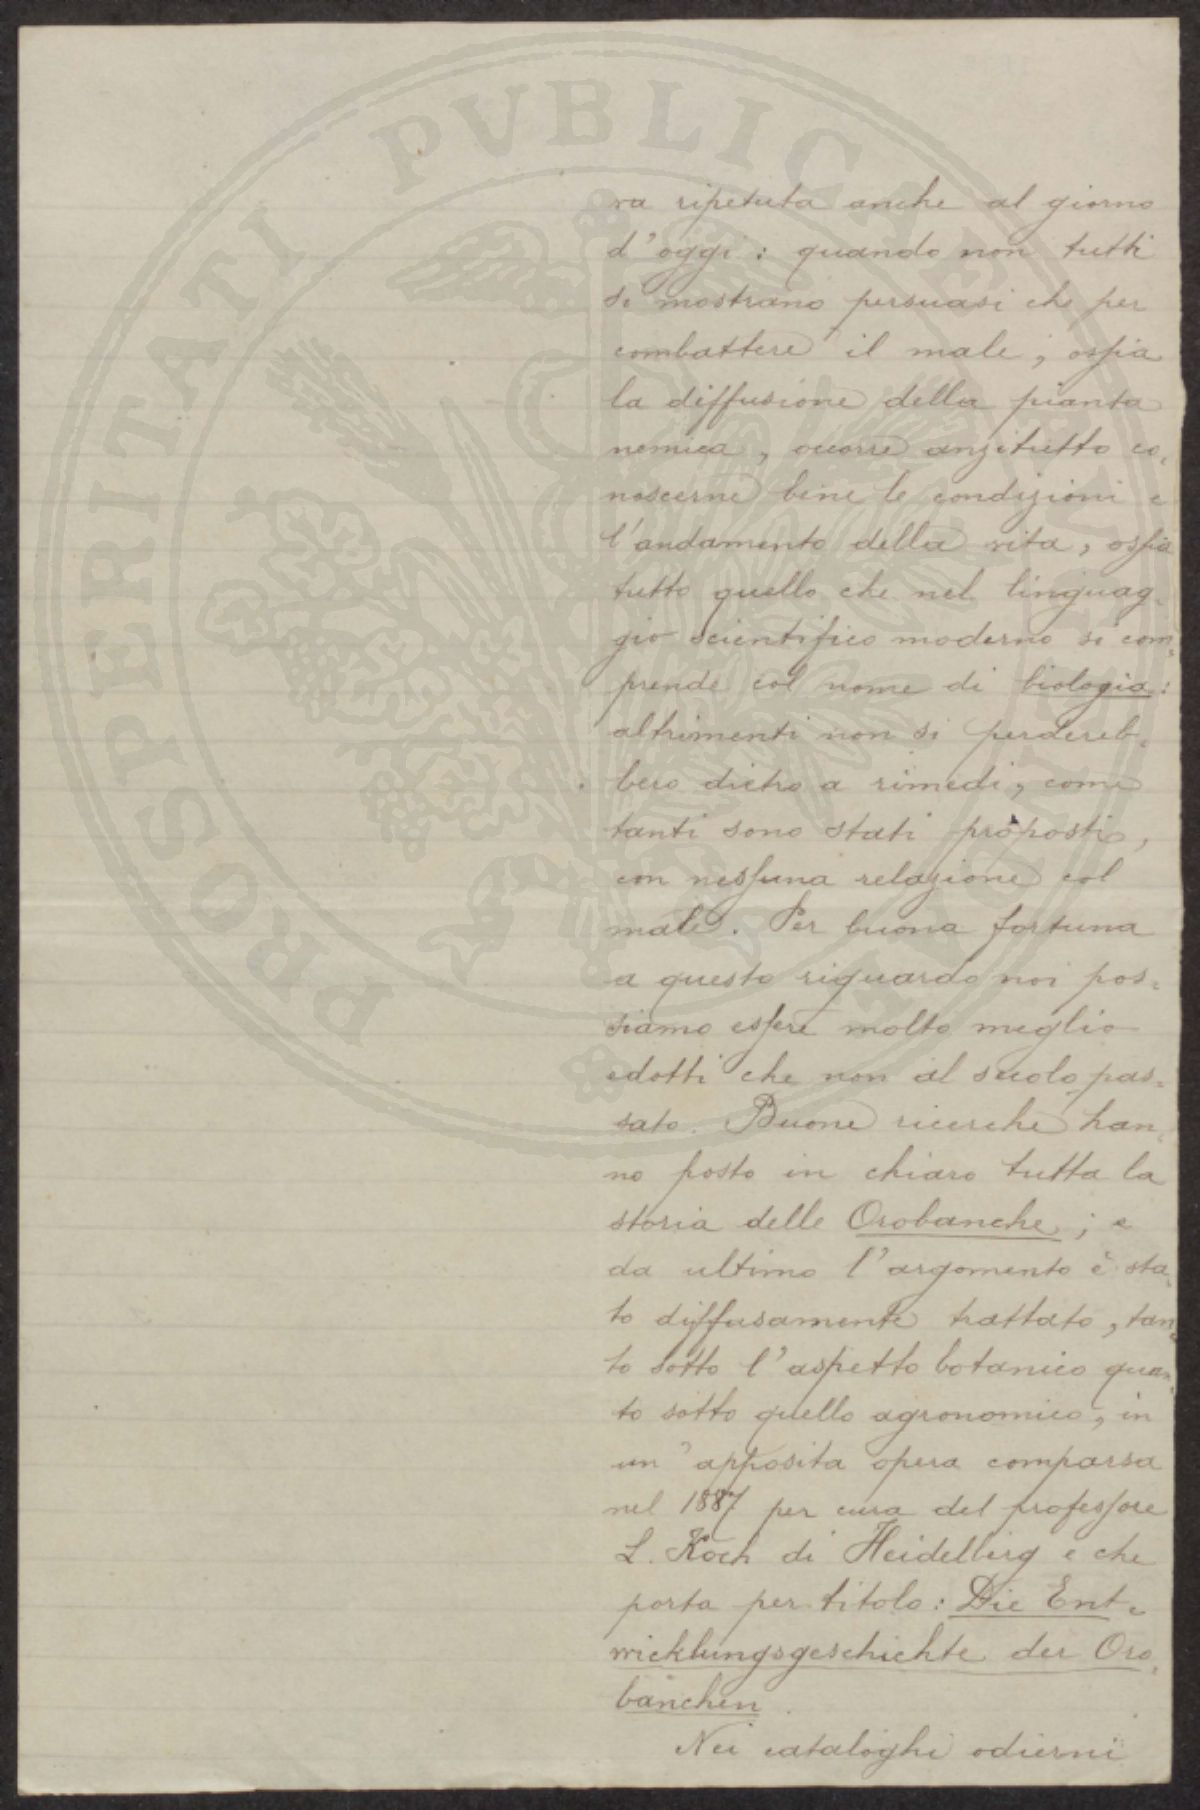 va ripetuta anche al giorno
d'oggi: quando non tutti
si mostrano persuasi che per
combattere il male, ossia
la diffusione della pianta
nemica, ocorre anzitutto co-
noscerne bene le condizioni e
l'andamento della vita, ossia
tutto quello che nel linguag-
gio scientifico moderno si com-
prende col nome di biologia:
altrimenti non si perdereb-
bero dietro a rimedi, come
tanti sono stati proposti,
con nessuna relazione col
male. Per buona fortuna
a questo riguardo noi pos-
siamo essere molto meglio
edotti che non al secolo pas-
sato. Buone ricerche han-
no posto in chiaro tutta la
storia delle Orobanche; e
da ultimo l'argomento è sta-
to diffusamente trattato, tan-
to sotto l'aspetto botanico quan-
to sotto quello agronomico, in
un'apposita opera comparsa
nel 1887 per cura del professore
L. Koch di Heidelberg e che
porta per titolo: Die Ent-
wicklungsgeschichte der Oro-
banchen.
Nei cataloghi odierni
PROSPERITATI PVBLICAE